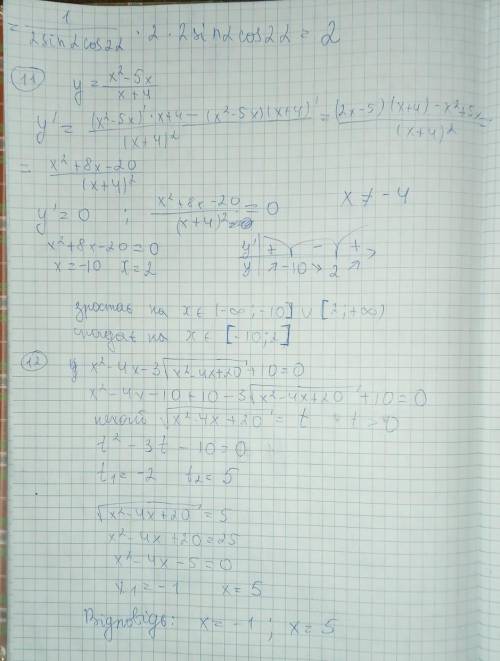 = 1/(2sin2cos22) · 2 · 2sin2cos22 = 2
11
y = (x²-5x)/(x+4)
y' = ((x²-5x)'·x+4-(x²-5x)(x+4)')/(x+4)² = ((2x-5)(x+4)-x²+5x)/(x+4)² =
= (x²+8x-20)/(x+4)²
y' = 0 ; (x²+8x-20)/(x+4)² = 0 x ≠ -4
x²+8x-20=0
x=-10 x=2
y' + - +
y ↗ -10 ↘ 2 ↗
зростає на x∈(-∞;-10] ∪ [2;+∞)
спадає на x∈[-10;2]
12
x²-4x-3√(x²-4x+20)+10=0
x²-4x-10+10-3√(x²-4x+20)+10=0
нехай √(x²-4x+20) = t t>0
t²-3t-10=0
t₁=-2 t₂=5
√(x²-4x+20)=5
x²-4x+20=25
x²-4x-5=0
x₁=-1 x=5
Відповідь: x=-1; x=5